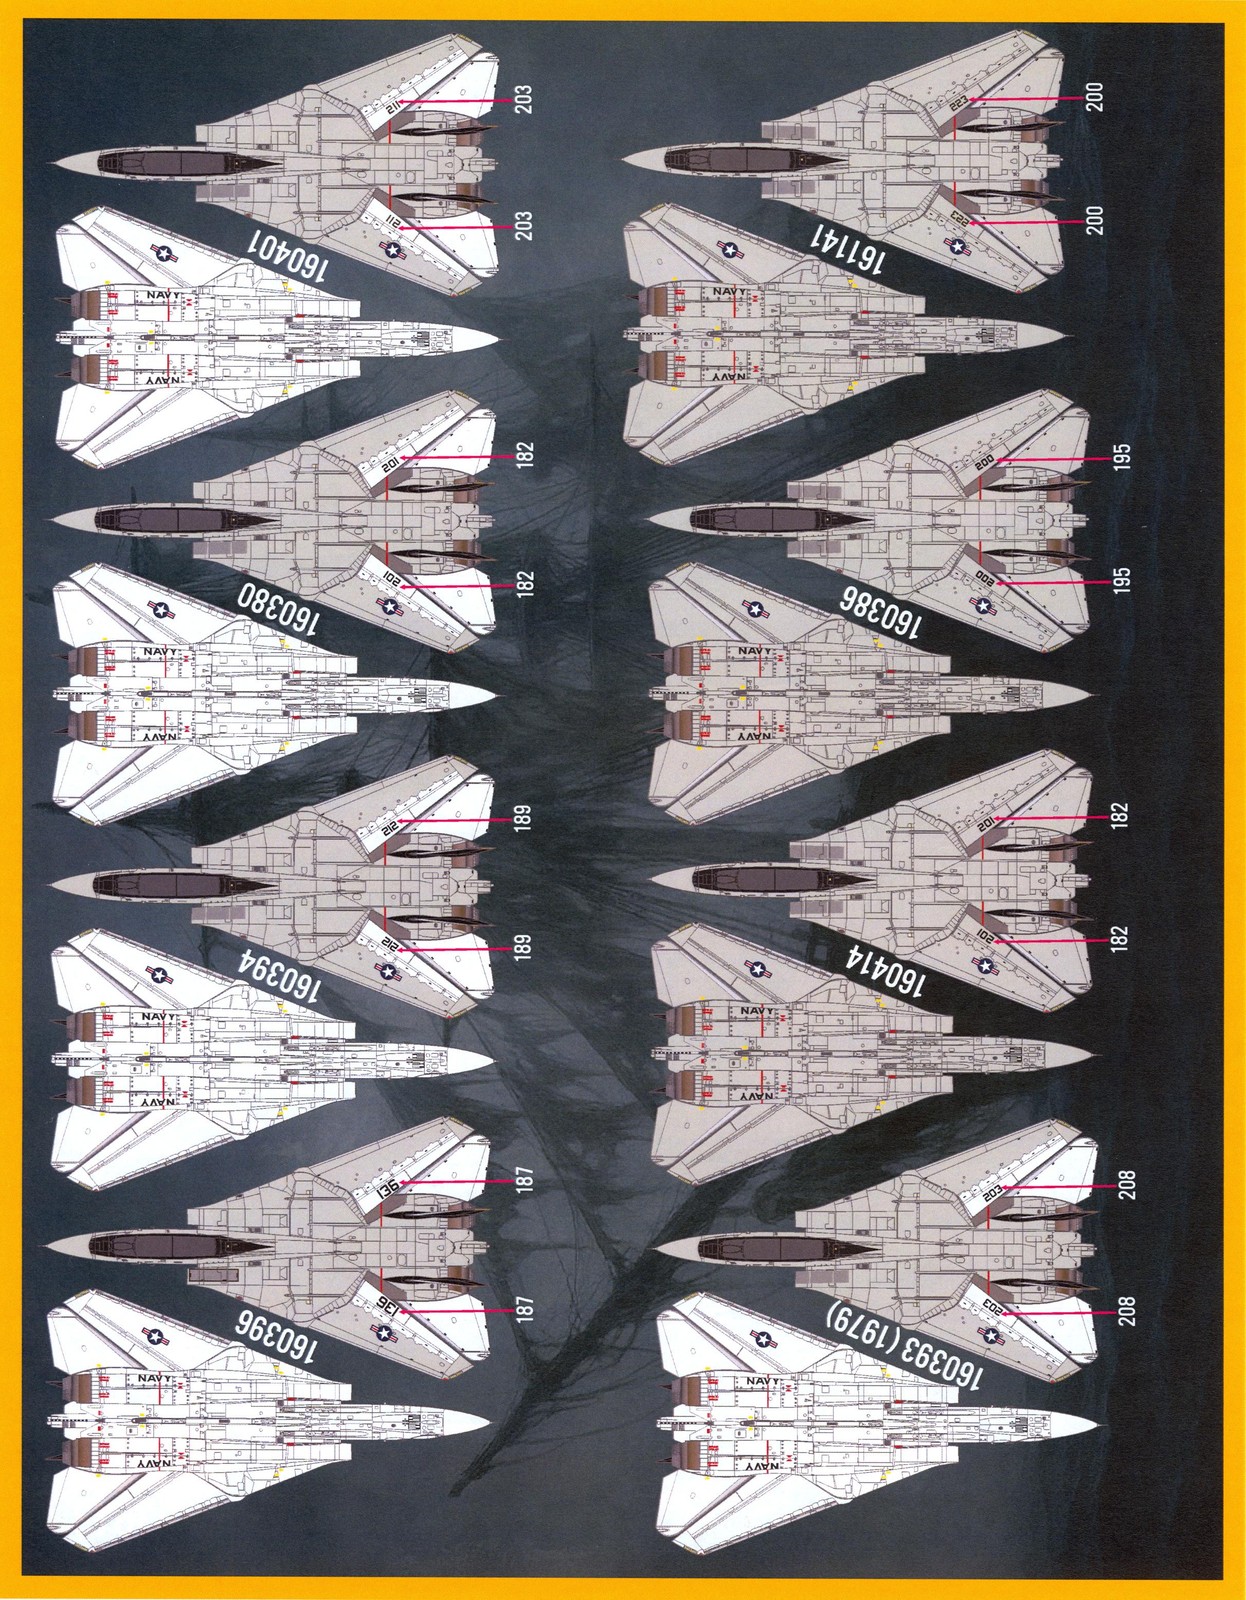 211
203
211
203
160401
NAVY
NAVY
223
200
223
200
161141
NAVY
NAVY
201
182
201
182
160380
NAVY
NAVY
200
195
200
195
160386
NAVY
NAVY
212
189
212
189
160394
NAVY
NAVY
201
182
201
182
160414
NAVY
NAVY
136
187
136
187
160396
NAVY
NAVY
203
208
203
208
160393 (1979)
NAVY
NAVY